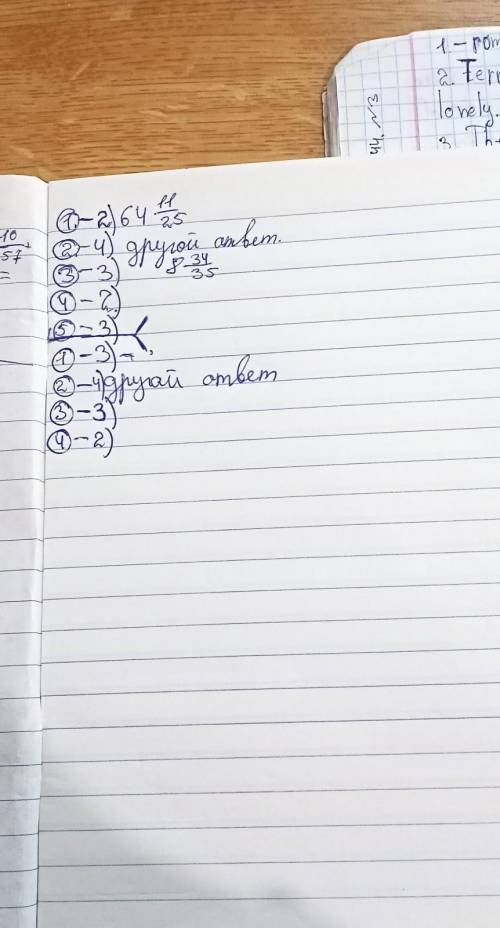 ① - 2) 64 11/25
② - 4) другой ответ.
③ - 3) 8 34/35
④ - 2)
⑤ - 3)
① - 3) -
② - 4) другай ответ
③ - 3)
④ - 2)
10/57
=
1. - rom
2. Ferr
lonely.
3. Th
44. №3